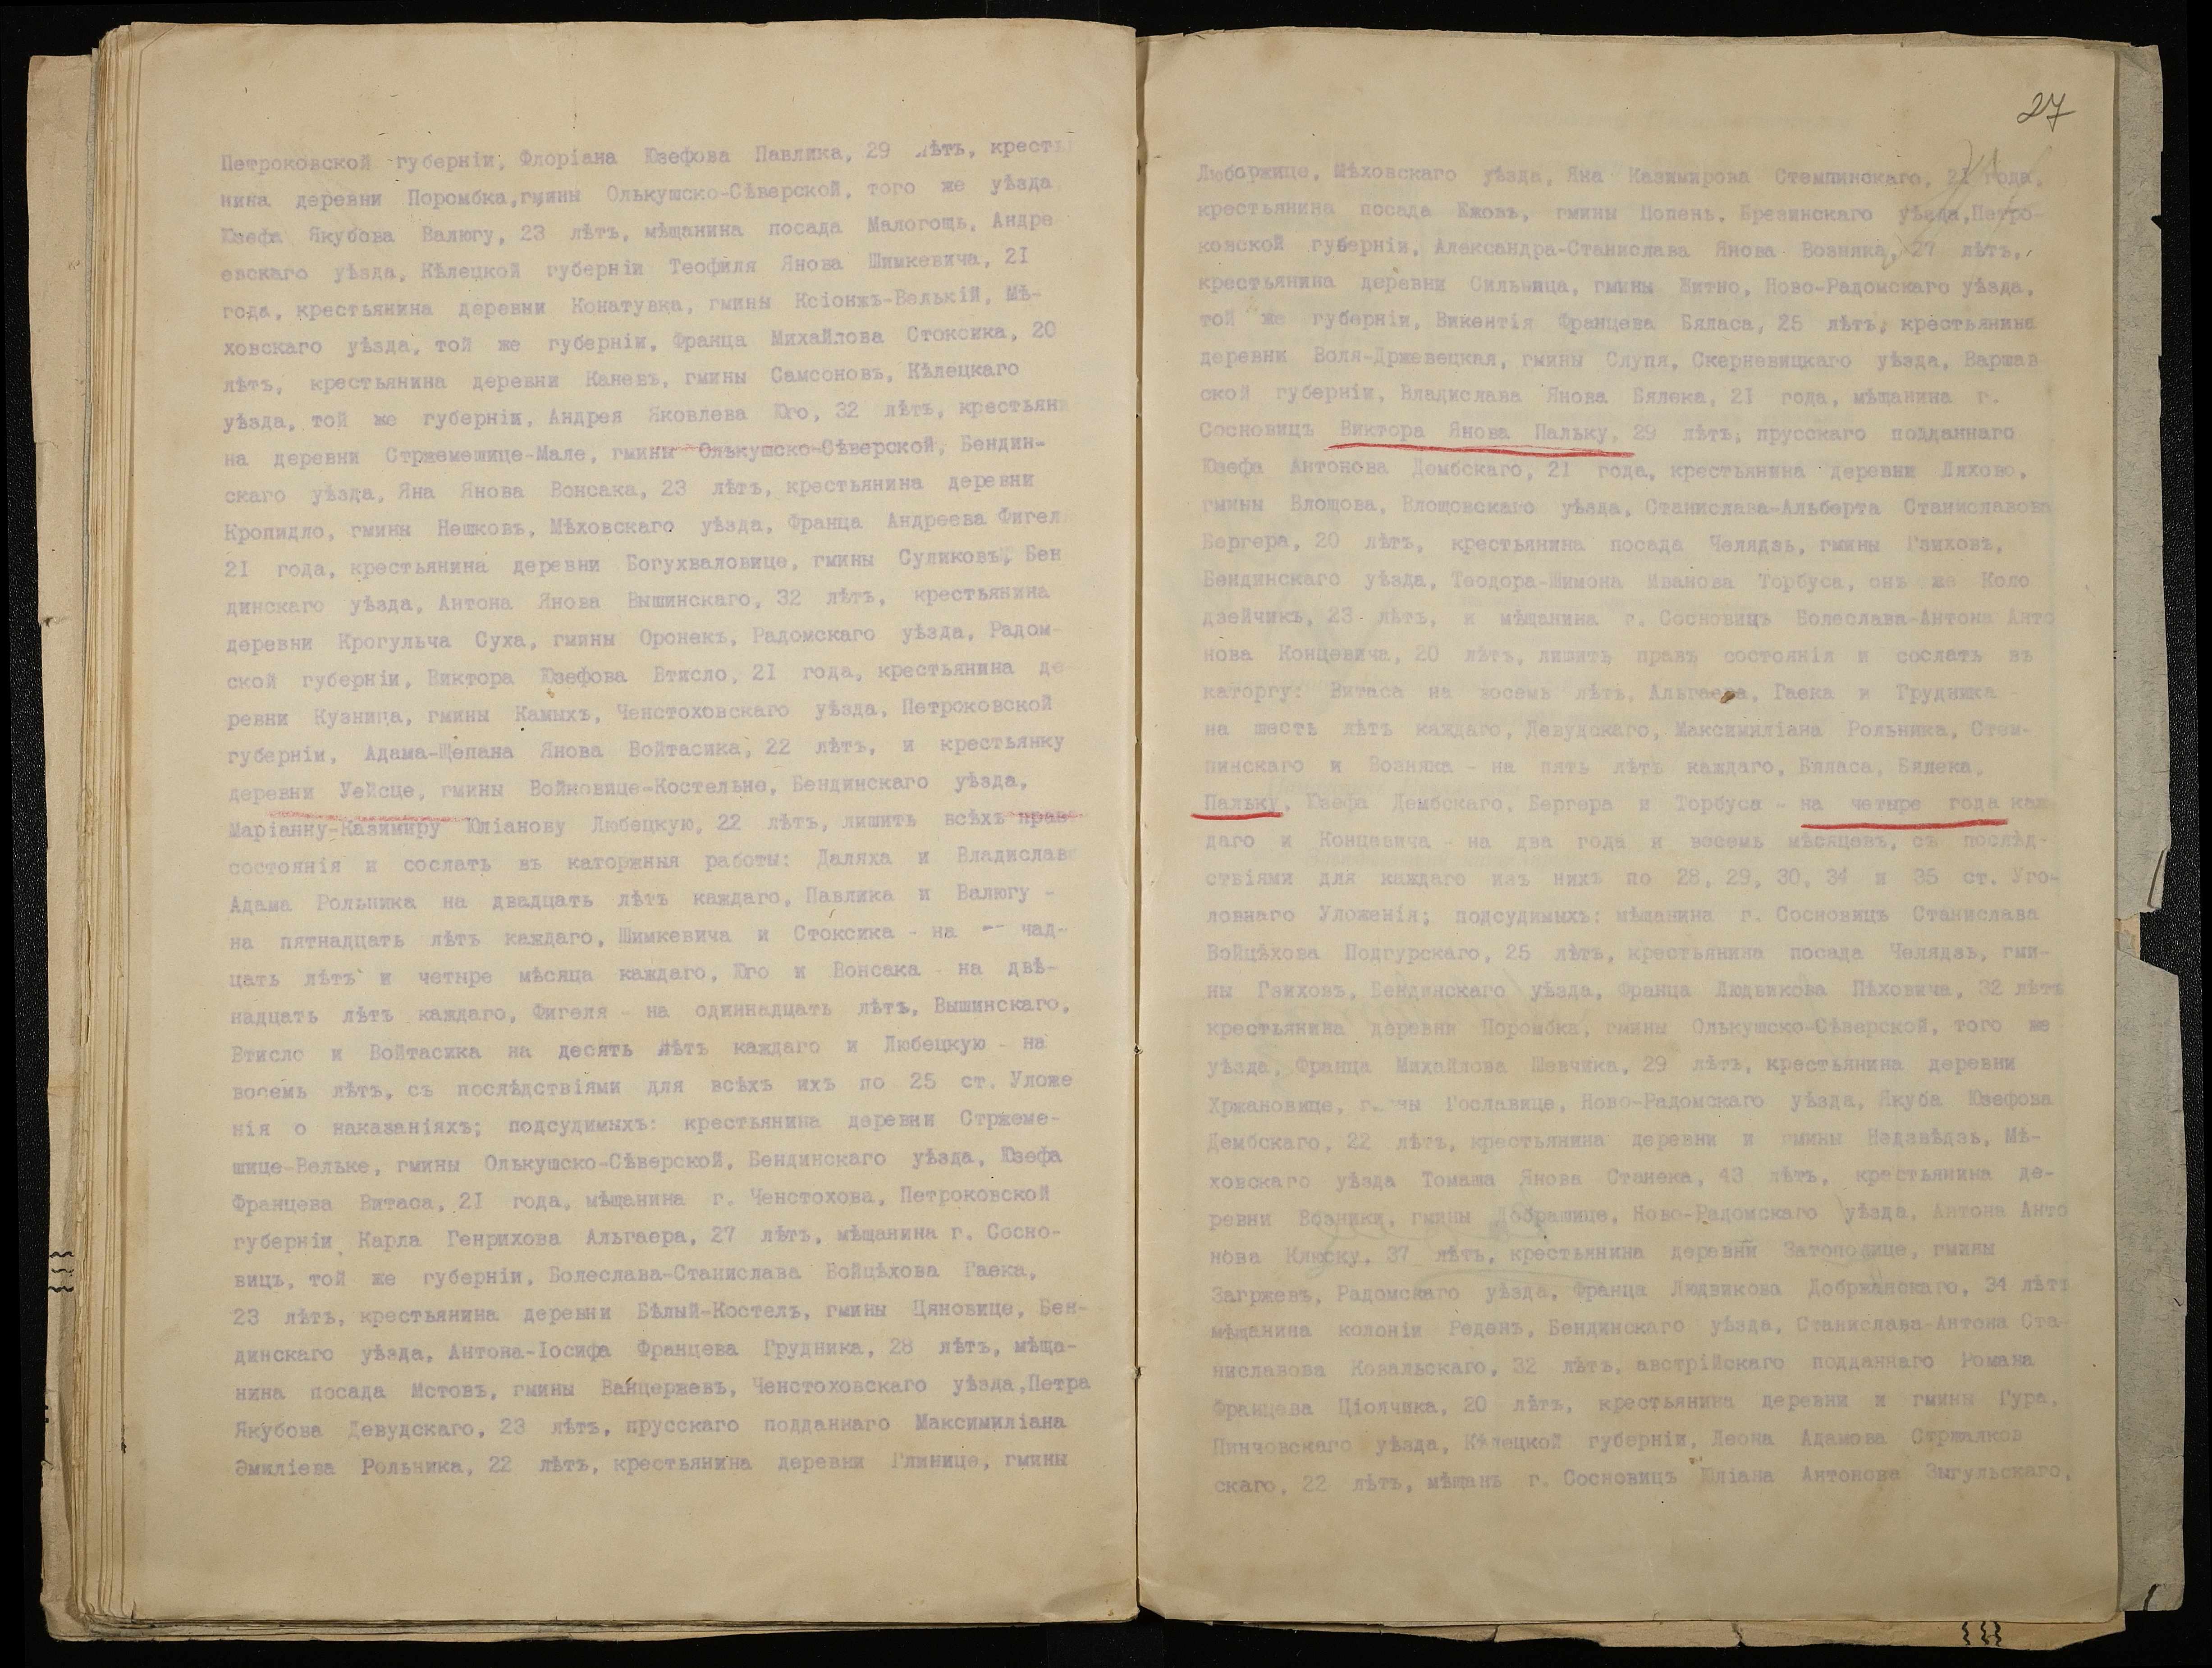 Петроковской губерніи, Флоріана Юзефова Павлика, 29 лѣтъ, кресть
нина деревни Поромбка, гмины Олькушско-Сѣверской, того же уѣзда
Юзефа Якубова Валюгу, 23 лѣтъ, мѣщанина посада Малогощь, Андре
евскаго уѣзда, Кѣлецкой губерніи Теофиля Янова Шимкевича, 21
года, крестьянина деревни Конатувка, гмины Ксіонжъ-Велькій, Мѣ-
ховскаго уѣзда, той же губерніи, Франца Михайлова Стоксика, 20
лѣтъ, крестьянина деревни Каневъ, гмины Самсоновъ, Кѣлецкаго
уѣзда, той же губерніи, Андрея Яковлева Юго, 32 лѣтъ, крестьяни
на деревни Стржемешице-Мале, гмины Олькушско-Сѣверской, Бендин-
скаго уѣзда, Яна Янова Вонсака, 23 лѣтъ, крестьянина деревни
Кропидло, гмины Нешковъ, Мѣховскаго уѣзда, Франца Андреева Фигел
21 года, крестьянина деревни Богухваловице, гмины Суликовъ, Бен
динскаго уѣзда, Антона Янова Вышинскаго, 32 лѣтъ, крестьянина
деревни Крогульча Суха, гмины Оронекъ, Радомскаго уѣзда, Радом-
ской губерніи, Виктора Юзефова Втисло, 21 года, крестьянина де
ревни Кузница, гмины Камыхъ, Ченстоховскаго уѣзда, Петроковской
губерніи, Адама-Щепана Янова Войтасика, 22 лѣтъ, и крестьянку
деревни Уейсце, гмины Войковице-Костельне, Бендинскаго уѣзда,
Маріанну-Казимиру Юліанову Любецкую, 22 лѣтъ, лишить всѣхъ прав
состоянія и сослать въ каторжныя работы: Даляха и Владислава
Адама Рольника на двадцать лѣтъ каждаго, Павлика и Валюгу -
на пятнадцать лѣтъ каждаго, Шимкевича и Стоксика - на чад-
цать лѣтъ и четыре мѣсяца каждаго, Юго и Вонсака - на двѣ-
надцать лѣтъ каждаго, Фигеля - на одиннадцать лѣтъ, Вышинскаго,
Втисло и Войтасика на десять лѣтъ каждаго и Любецкую - на
восемь лѣтъ, съ послѣдствіями для всѣхъ ихъ по 25 ст. Уложе
нія о наказаніяхъ; подсудимыхъ: крестьянина деревни Стржеме-
шице-Вельке, гмины Олькушско-Сѣверской, Бендинскаго уѣзда, Юзефа
Францева Витаса, 21 года, мѣщанина г. Ченстохова, Петроковской
губерніи Карла Генрихова Альгаера, 27 лѣтъ, мѣщанина г. Сосно-
вицъ, той же губерніи, Болеслава-Станислава Войцѣхова Гаека,
23 лѣтъ, крестьянина деревни Бѣлый-Костелъ, гмины Цяновице, Бен-
динскаго уѣзда, Антона-Іосифа Францева Грудника, 28 лѣтъ, мѣща-
нина посада Мстовъ, гмины Ванцержевъ, Ченстоховскаго уѣзда, Петра
Якубова Девудскаго, 23 лѣтъ, прусскаго подданнаго Максимиліана
Эмиліева Рольника, 22 лѣтъ, крестьянина деревни Глинице, гмины
27
Люборжице, Мѣховскаго уѣзда, Яна Казимирова Стемпинскаго, 21 года,
крестьянина посада Ежовъ, гмины Попень, Брезинскаго уѣзда, Петро-
ковской губерніи, Александра-Станислава Янова Возняка, 27 лѣтъ,
крестьянина деревни Сильница, гмины Житно, Ново-Радомскаго уѣзда,
той же губерніи, Викентія Францева Бяласа, 25 лѣтъ, крестьянина
деревни Воля-Држевецкая, гмины Слупя, Скерневицкаго уѣзда, Варшав
ской губерніи, Владислава Янова Бялека, 21 года, мѣщанина г.
Сосновицъ Виктора Янова Пальку, 29 лѣтъ, прусскаго подданнаго
Юзефа Антонова Дембскаго, 21 года, крестьянина деревни Ляхово,
гмины Влощова, Влощовскаго уѣзда, Станислава-Альберта Станиславова
Бергера, 20 лѣтъ, крестьянина посада Челядзь, гмины Гзиховъ,
Бендинскаго уѣзда, Теодора-Шимона Иванова Торбуса, онъ же Коло
дзейчикъ, 23 лѣтъ, и мѣщанина г. Сосновицъ Болеслава-Антона Анто
нова Концевича, 20 лѣтъ, лишить правъ состоянія и сослать въ
каторгу: Витаса на восемь лѣтъ, Альгаера, Гаека и Грудника -
на шесть лѣтъ каждаго, Девудскаго, Максимиліана Рольника, Стем-
пинскаго и Возняка - на пять лѣтъ каждаго, Бяласа, Бялека,
Пальку, Юзефа Дембскаго, Бергера и Торбуса - на четыре года каж
даго и Концевича - на два года и восемь мѣсяцевъ, съ послѣд-
ствіями для каждаго изъ нихъ по 28, 29, 30, 34 и 35 ст. Уго-
ловнаго Уложенія; подсудимыхъ: мѣщанина г. Сосновицъ Станислава
Войцѣхова Подгурскаго, 25 лѣтъ, крестьянина посада Челядзь, гми-
ны Гзиховъ, Бендинскаго уѣзда, Франца Людвикова Пѣховича, 32 лѣтъ
крестьянина деревни Поромбка, гмины Олькушско-Сѣверской, того же
уѣзда, Франца Михайлова Шевчика, 29 лѣтъ, крестьянина деревни
Хржановице, гмины Гославице, Ново-Радомскаго уѣзда, Якуба Юзефова
Дембскаго, 22 лѣтъ, крестьянина деревни и гмины Недзвѣдзь, Мѣ-
ховскаго уѣзда Томаша Янова Станека, 43 лѣтъ, крестьянина де-
ревни Возники, гмины Добрашице, Ново-Радомскаго уѣзда, Антона Анто
нова Клюску, 37 лѣтъ, крестьянина деревни Затополице, гмины
Загржевъ, Радомскаго уѣзда, Франца Людвикова Добржанскаго, 34 лѣтъ
мѣщанина колоніи Реденъ, Бендинскаго уѣзда, Станислава-Антона Ста-
ниславова Ковальскаго, 32 лѣтъ, австрійскаго подданнаго Романа
Францева Ціолчика, 20 лѣтъ, крестьянина деревни и гмины Гура,
Пинчовскаго уѣзда, Кѣлецкой губерніи, Леона Адамова Стржалков
скаго, 22 лѣтъ, мѣщанъ г. Сосновицъ Юліана Антонова Зыгульскаго,